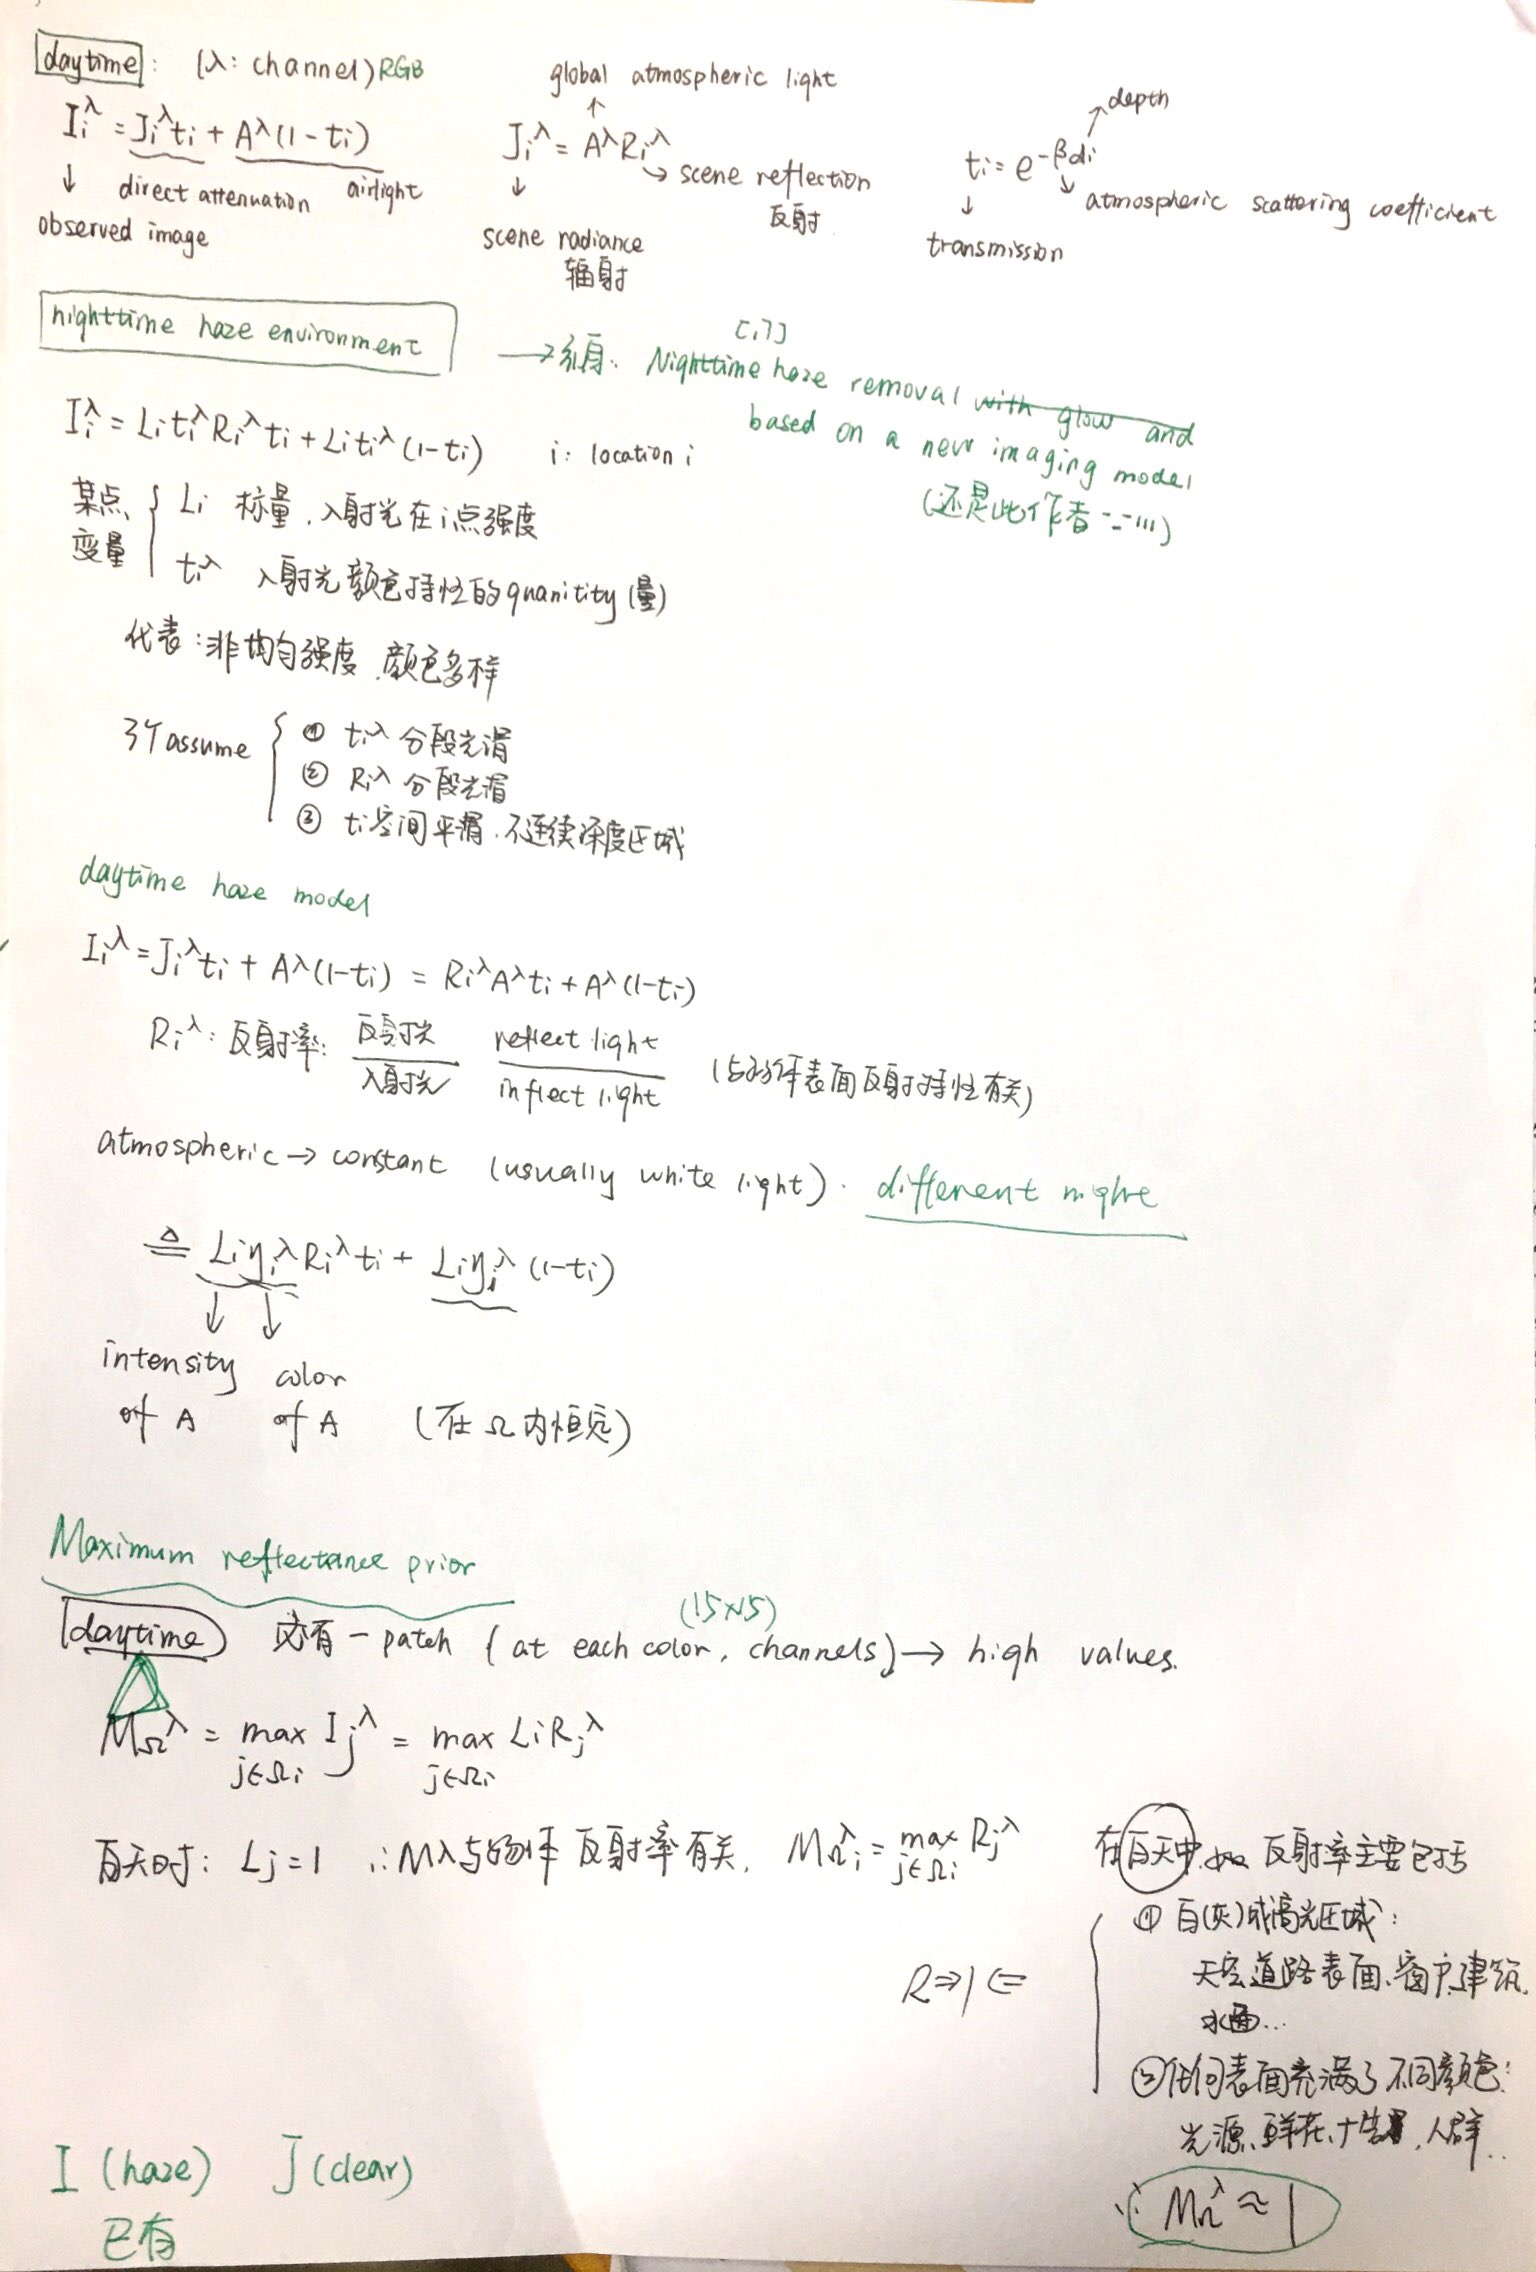 daytime : (λ: channel) RGB
I_i^λ = J_i^λ t_i + A^λ (1 - t_i)
direct attenuation airlight
observed image
global atmospheric light
J_i^λ = A^λ R_i^λ
scene reflection
反射
scene radiance
辐射
t_i = e^{-βd_i}
depth
atmospheric scattering coefficient
transmission
nighttime haze environment
[17]
Nighttime haze removal with glow and
based on a new imaging model
(还是此作者 -_-111)
I_i^λ = L_i t_i^λ R_i^λ t_i + L_i t_i^λ (1 - t_i) i: location i
某点
变量
L_i 标量, 入射光在i点强度
t_i^λ 入射光颜色特性的quanitity (量)
代表: 非均匀强度, 颜色多样
3个assume
① t_i^λ 分段光滑
② R_i^λ 分段光滑
③ t_i空间平滑, 不连续深度区域
daytime haze model
I_i^λ = J_i^λ t_i + A^λ (1-t_i) = R_i^λ A^λ t_i + A^λ (1-t_i)
R_i^λ: 反射率: 反射光/入射光 reflect light/inflect light (与物体表面反射特性有关)
atmospheric → constant (usually white light). different night
≜ L_i η_i^λ R_i^λ t_i + L_i η_i^λ (1-t_i)
intensity color
of A of A (在Ω内恒定)
Maximum reflectance prior
(15×15)
daytime 必有一patch (at each color, channels) → high values.
M_Ω^λ = max_{j∈Ω_i} I_j^λ = max_{j∈Ω_i} L_i R_j^λ
白天时: L_j = 1 ∴ M^λ与物体反射率有关, M_{Ω_i}^λ = max_{j∈Ω_i} R_j^λ
在白天中, 反射率主要包括
① 白(灰)或高光区域:
天空道路表面、窗户建筑,
水面...
R ⇒ 1 ⇐
② 任何表面充满了不同颜色:
光源、鲜花、广告牌, 人群...
∴ M_Ω^λ ≈ 1
I (haze) J (clear)
已有